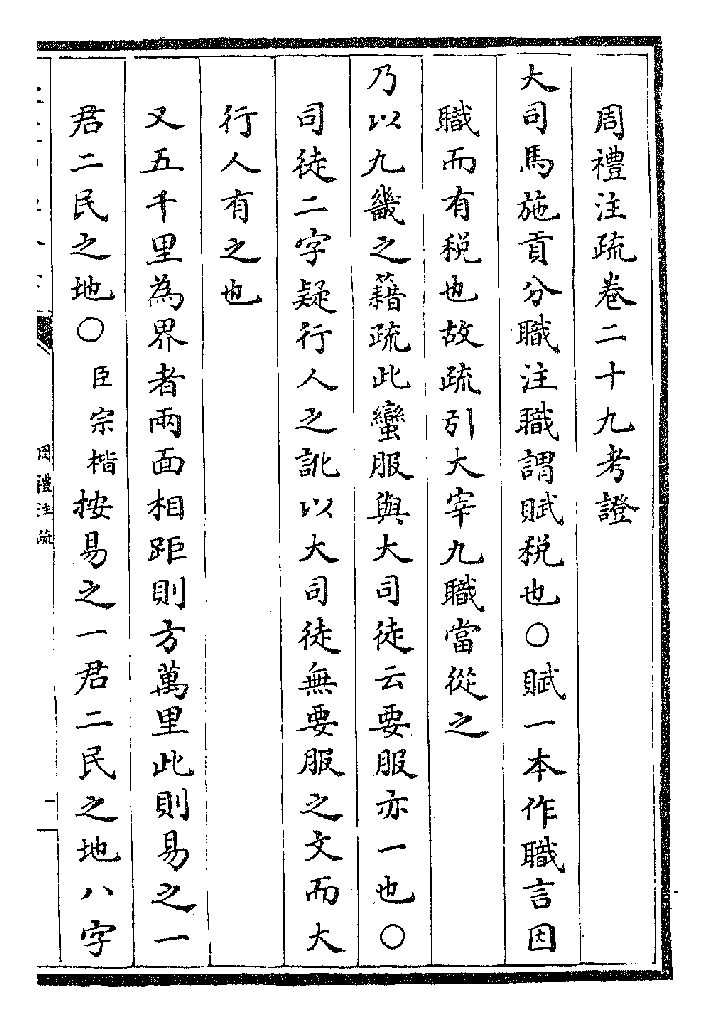 周禮注疏卷二十九考證
大司馬施貢分職注職謂賦税也○賦一本作職言因
職而有税也故疏引大宰九職當從之
乃以九畿之籍疏此蠻服與大司徒云要服亦一也○
司徒二字疑行人之訛以大司徒無要服之文而大
行人有之也
又五千里為界者兩面相距則方萬里此則易之一
君二民之地○臣宗楷按易之一君二民之地八字
周禮注疏